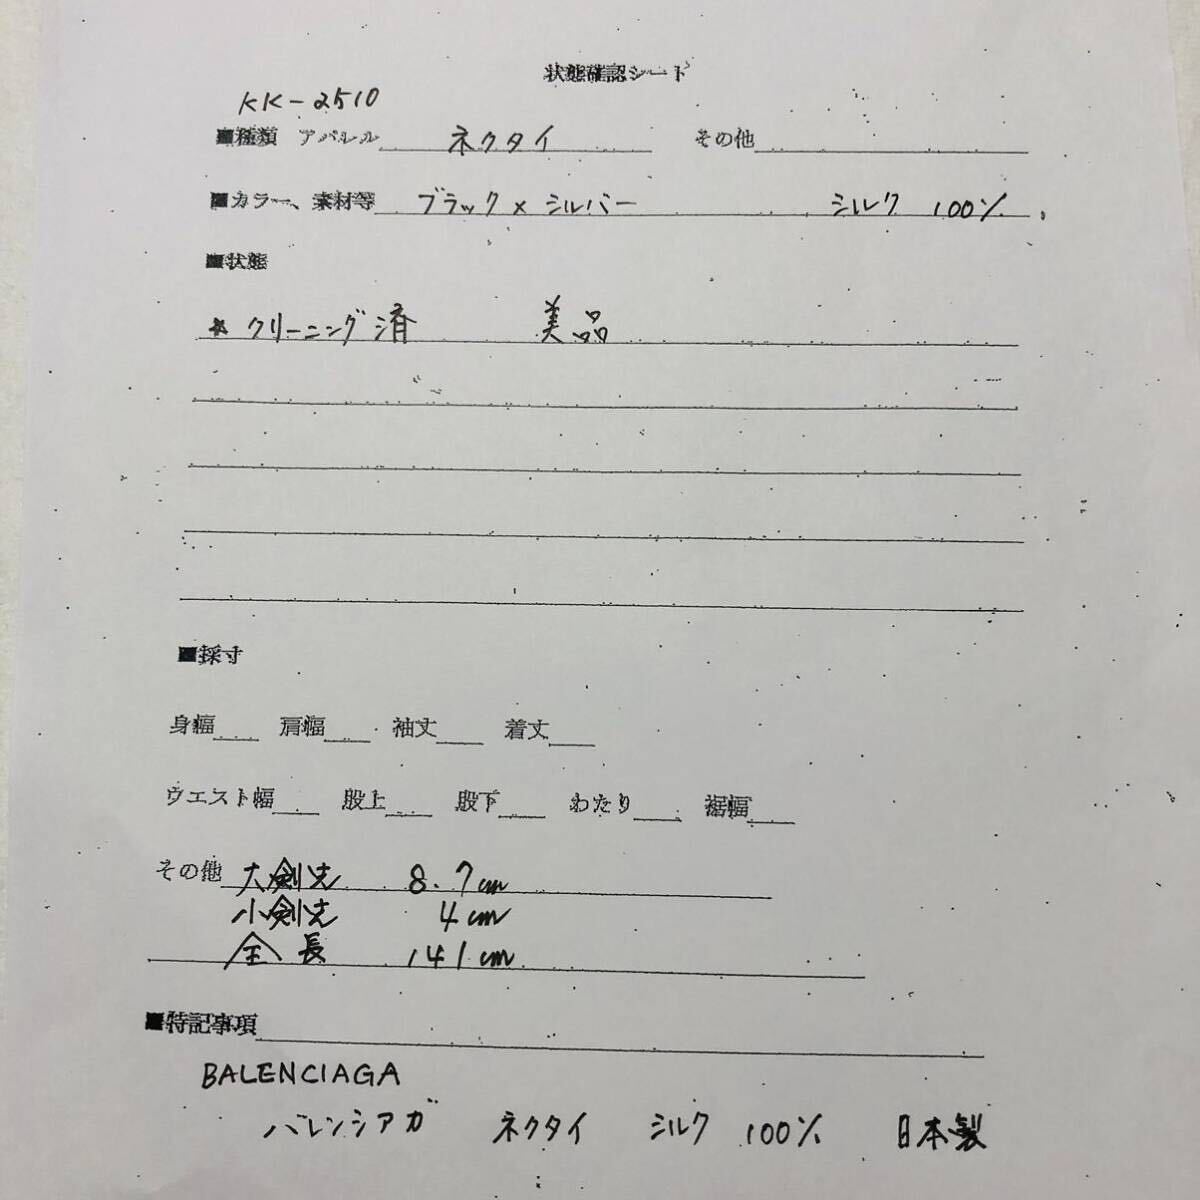 状態確認シート
KK-2510
■種類 アパレル ネクタイ その他
■カラー、素材等 ブラック×シルバー シルク 100%
■状態
* クリーニング済 美品
■採寸
身幅 肩幅 袖丈 着丈
ウエスト幅 股上 股下 わたり 裾幅
その他 大剣先 8.7cm
小剣先 4cm
全長 141cm
■特記事項
BALENCIAGA
バレンシアガ ネクタイ シルク 100% 日本製